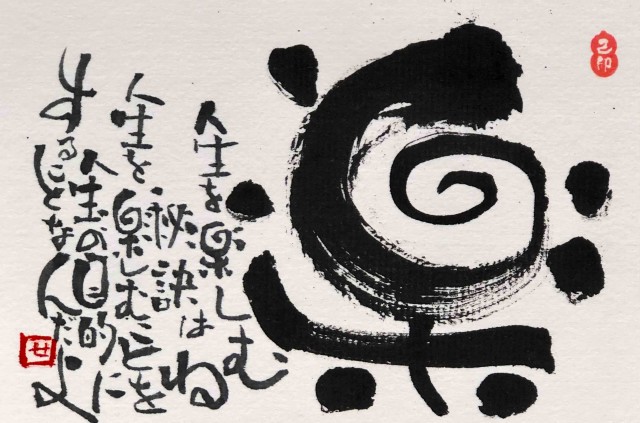 己卯
楽
人生を楽しむ
秘訣はね
人生を楽しむことを
人生の目的に
することなんだよ